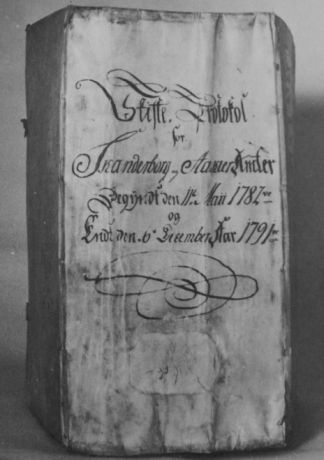 Skifte. Protokol
for
Skanderborg og Aakiær Amter
Begÿndt den 11te Maii 1787
og
Endt den 6te December 1791